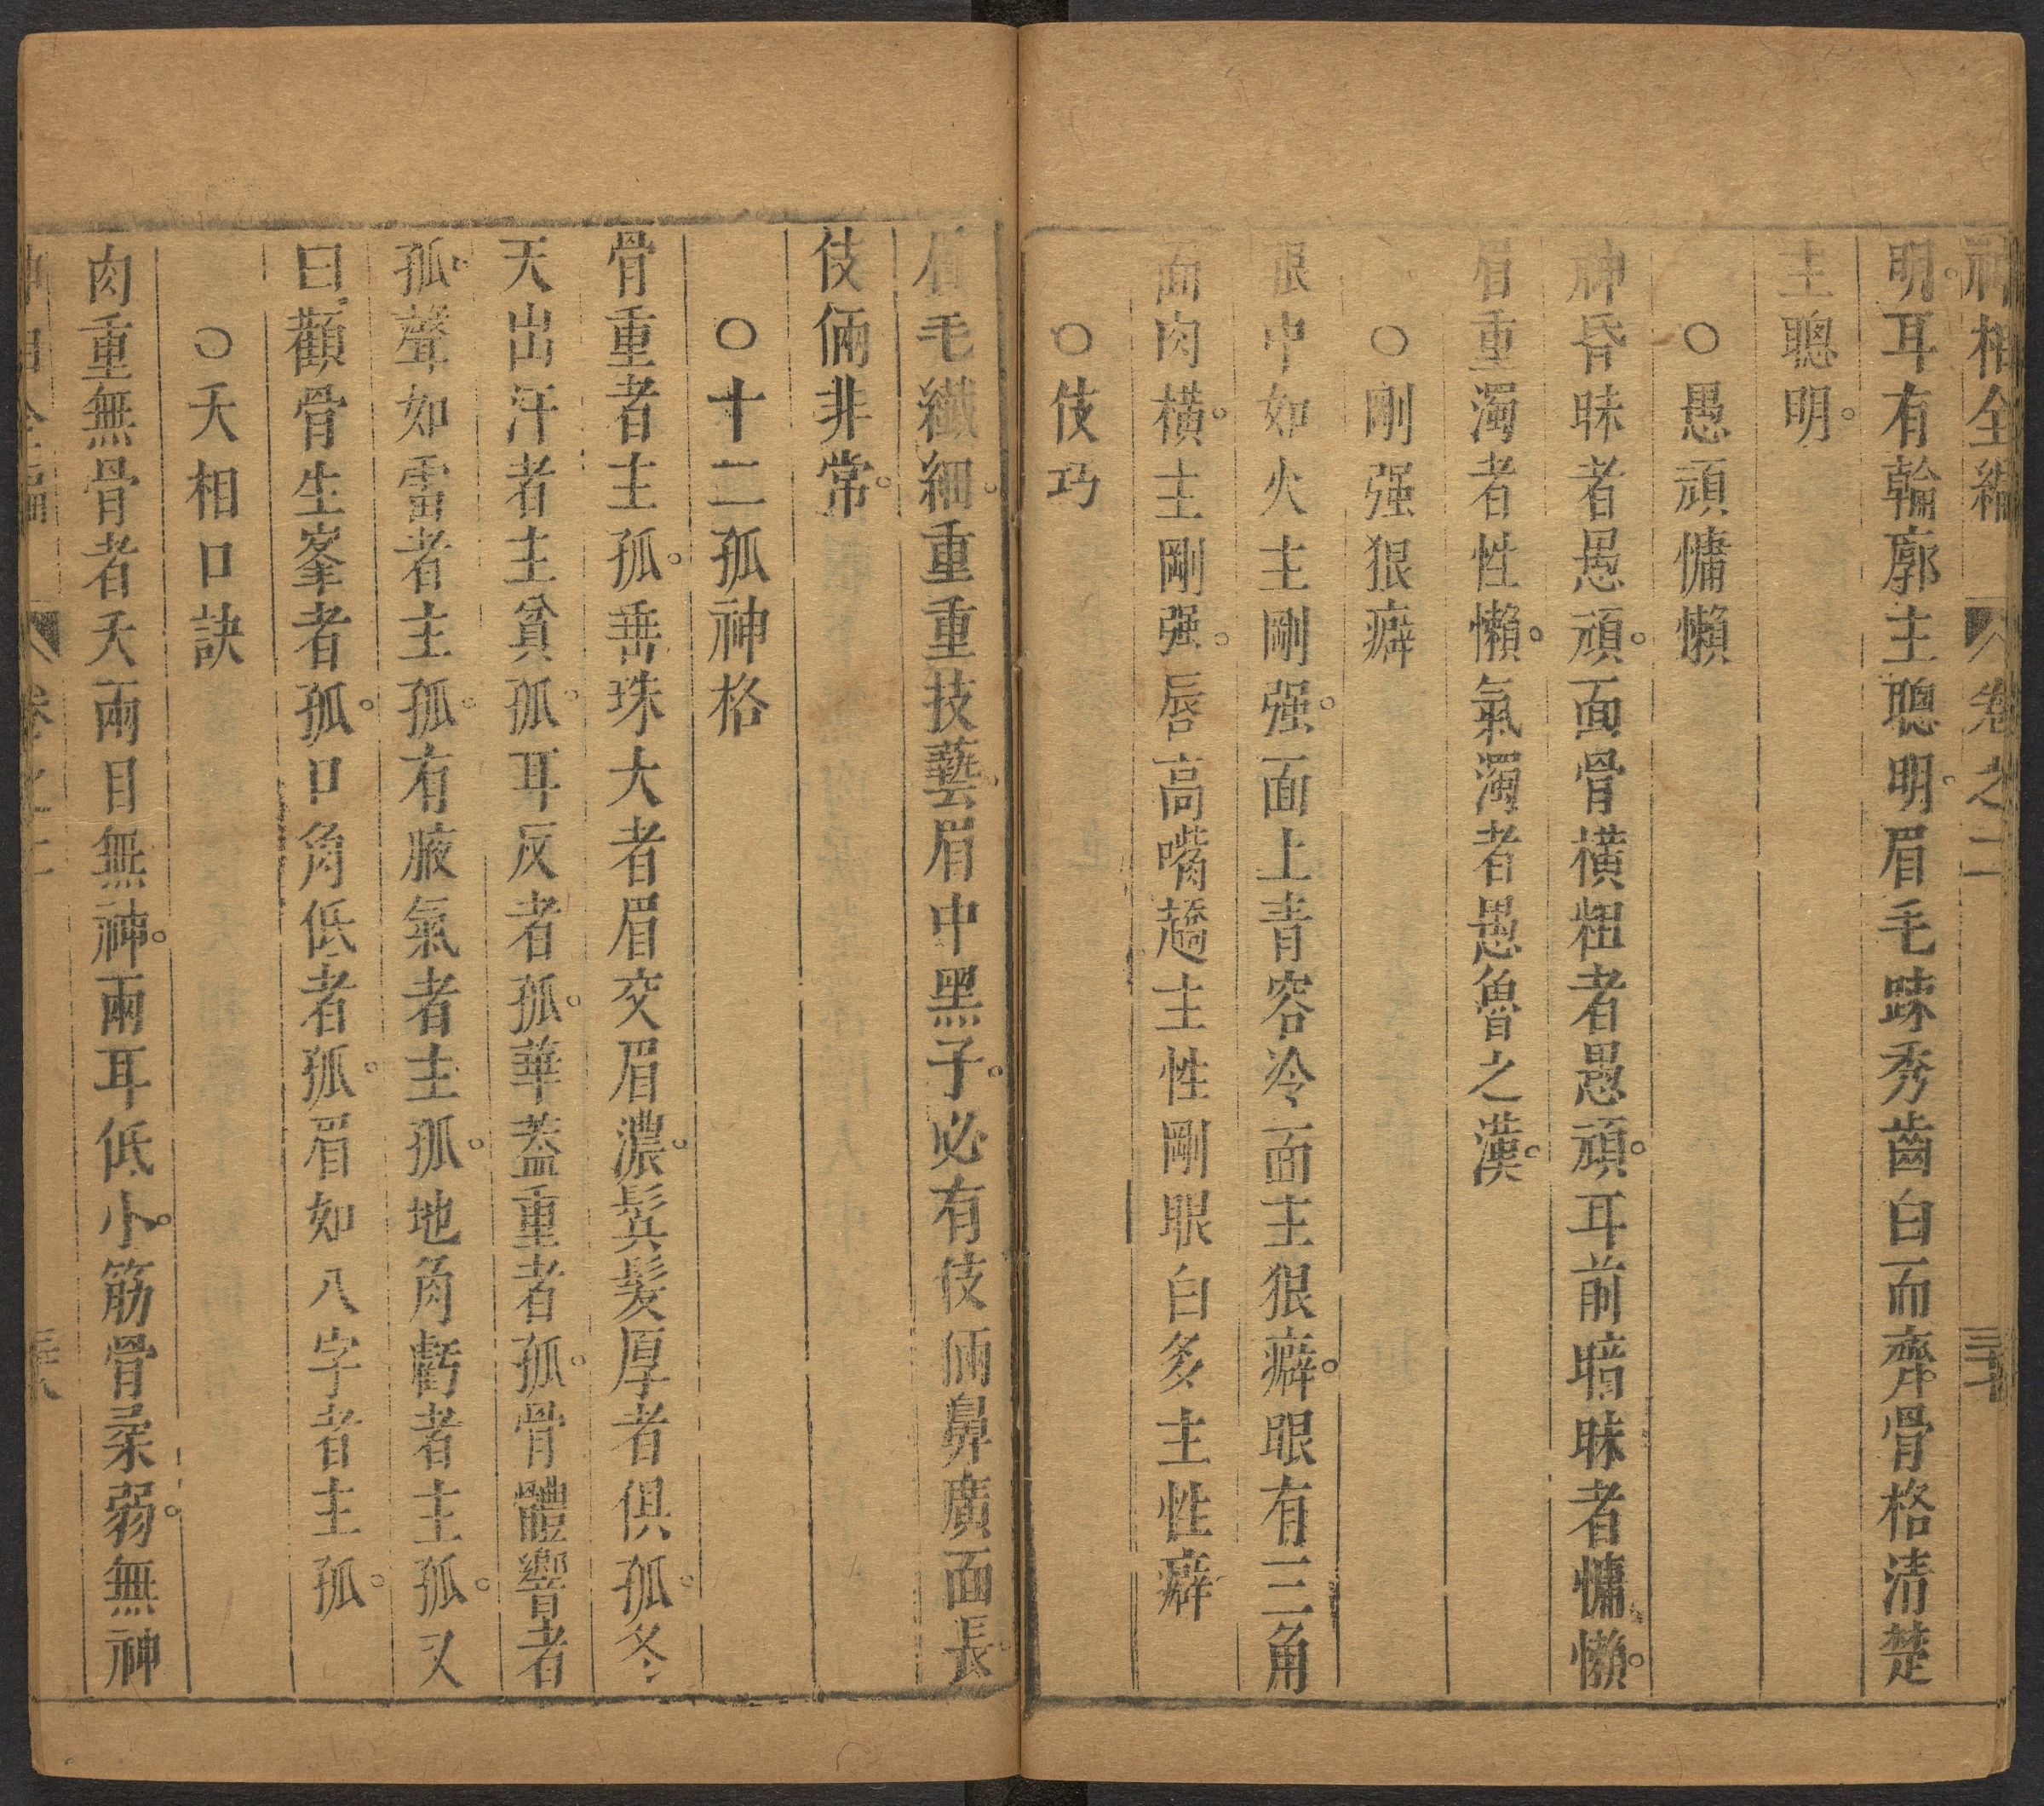 神相全編 卷之二 三十
明。耳有輪廓主聰明。眉毛踈秀齒白而齊。骨格清楚
主聰明。
○愚頑慵懶
神昏昧者愚頑。面骨橫粗者愚頑。耳前暗昧者慵懶。
眉重濁者性懶。氣濁者愚魯之漢。
○剛强狠癖
眼中如火主剛强。面上青容冷面主狠癖。眼有三角
面肉橫。主剛强。唇高嘴趫主性剛眼白多主性癖
○伎巧
眉毛纖細。重重技藝。眉中黑子。必有伎倆鼻廣面長。
伎倆非常。
○十二孤神格
骨重者主孤。垂珠大者眉交眉濃。鬂髮厚者俱孤。冬
天出汗者主貧孤。耳反者孤。華蓋重者孤。骨體響者
孤。聲如雷者主孤。有腋氣者主孤。地角虧者主孤。又
曰。顴骨生峯者孤。口角低者孤。眉如八字者主孤。
○夭相口訣
肉重無骨者夭兩目無神。兩耳低小。筋骨柔弱。無神
神相全編 卷之二